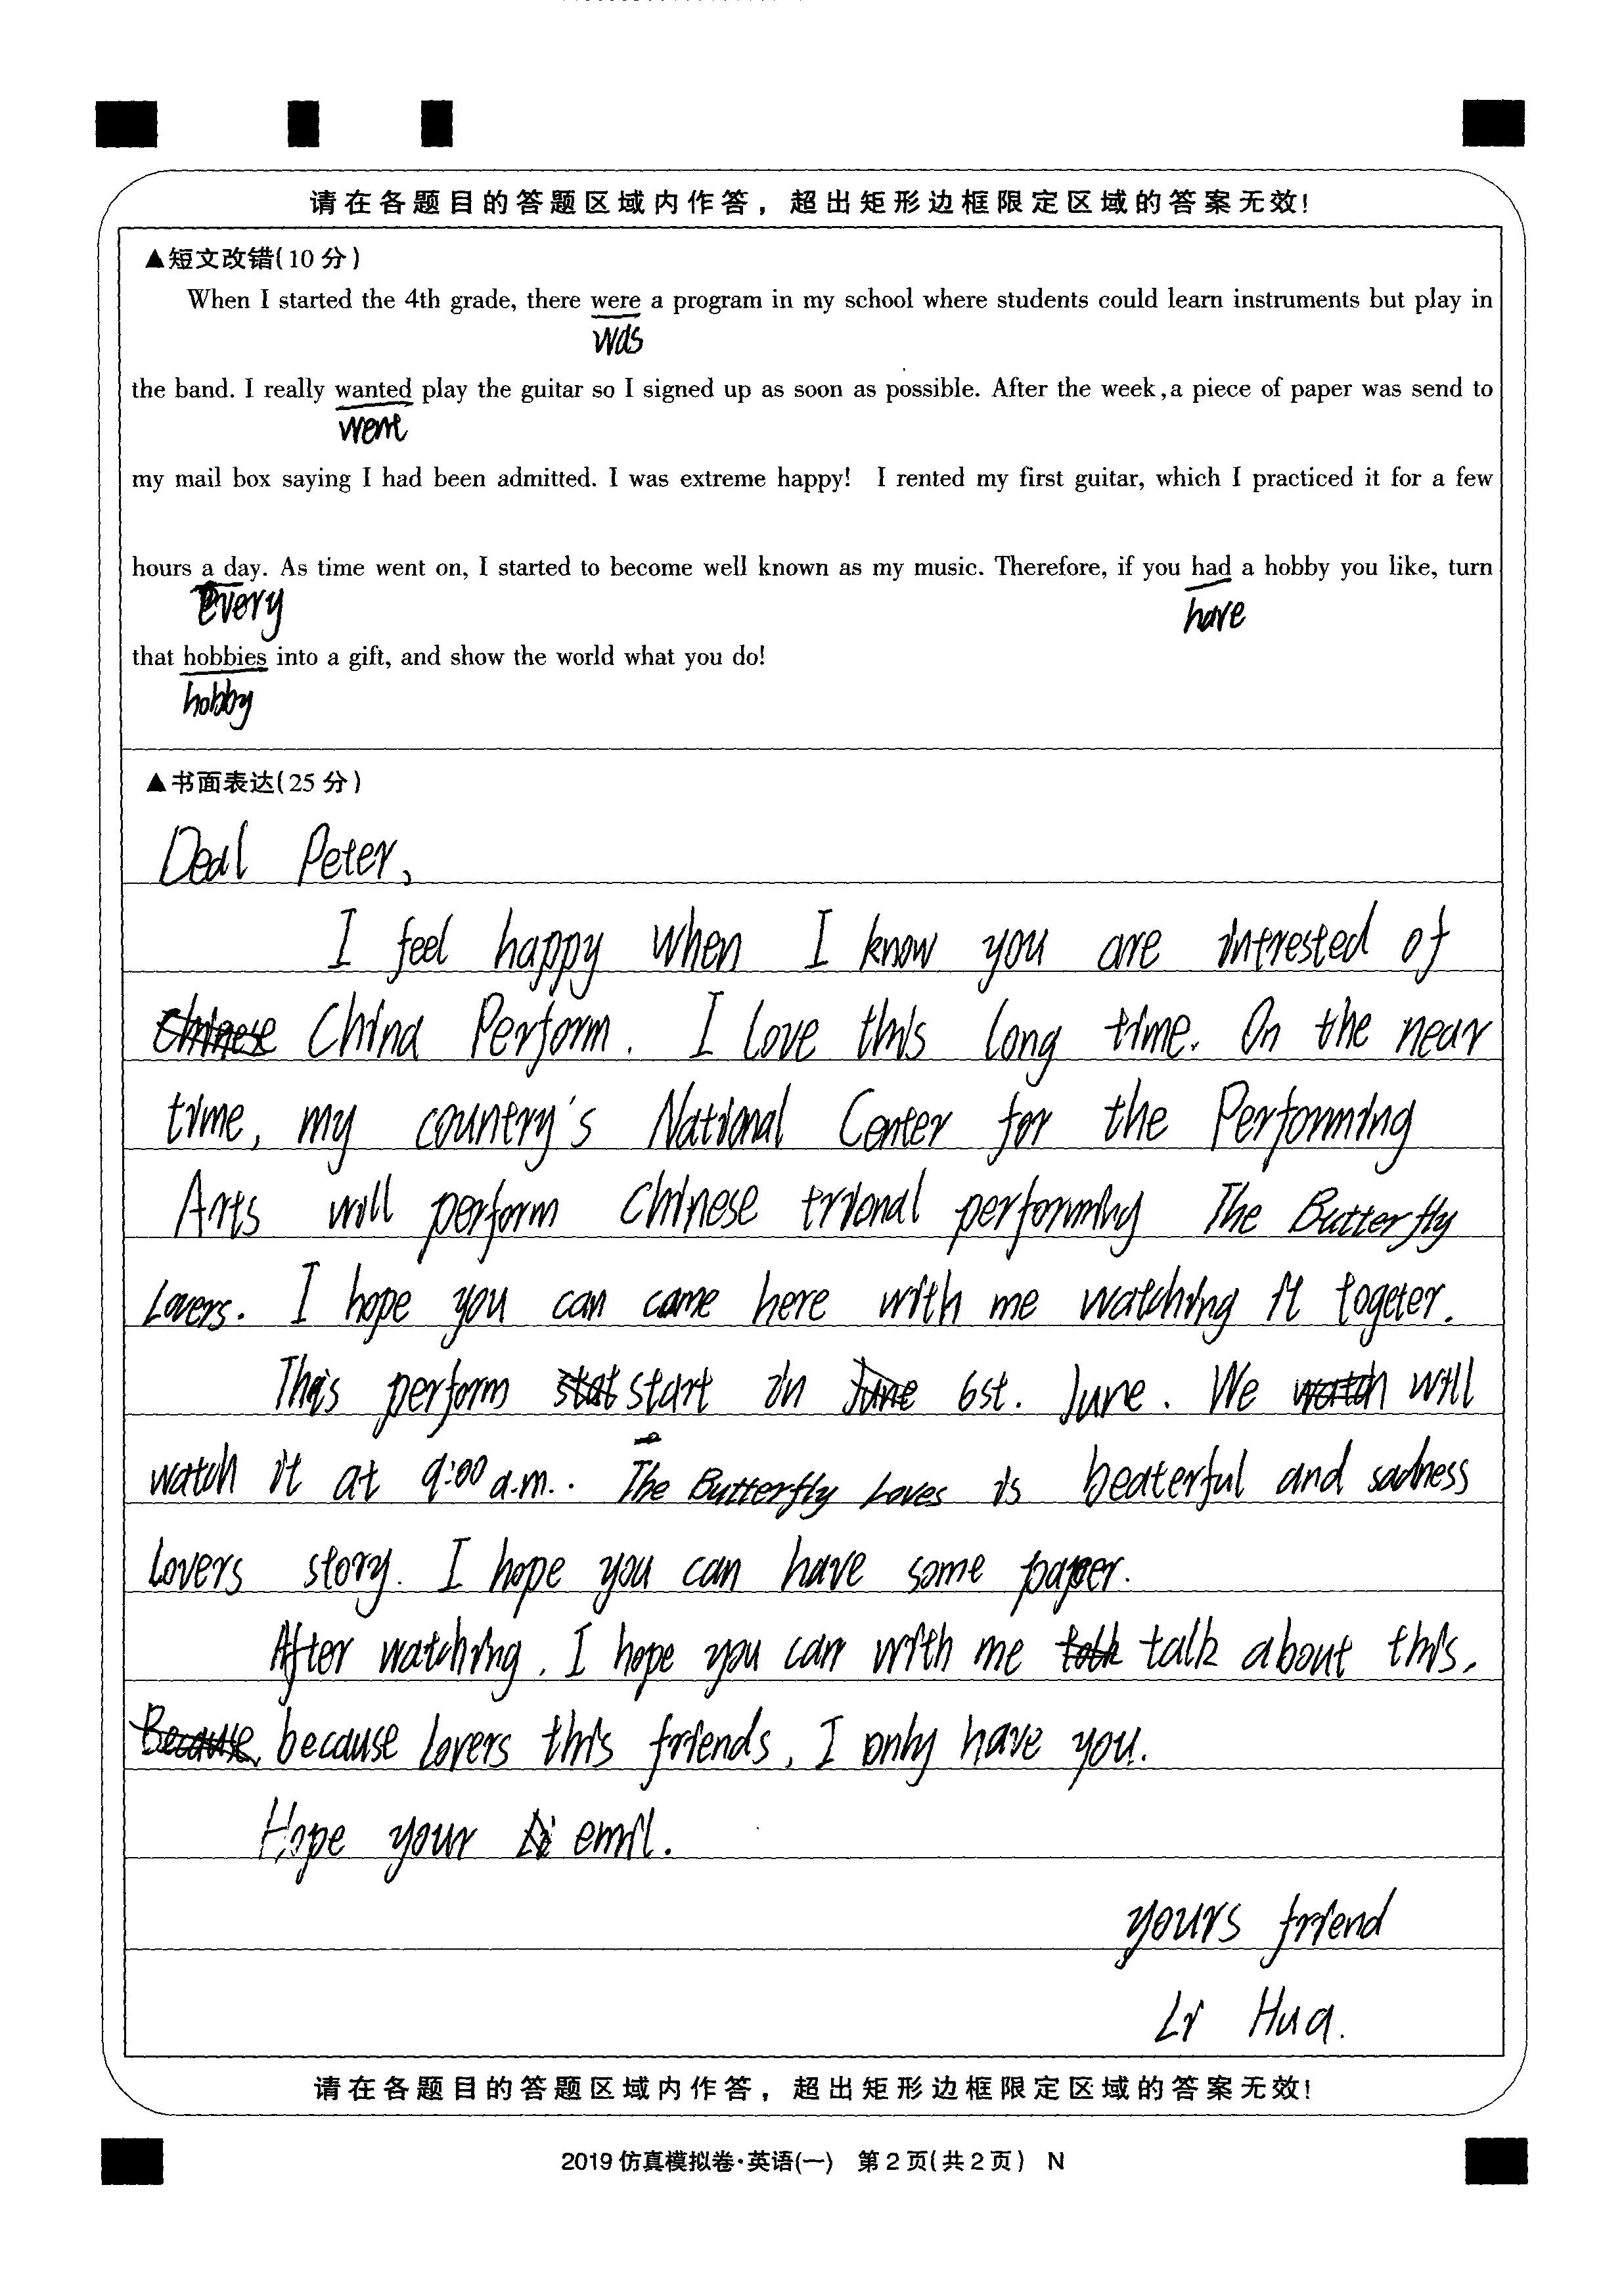 请在各题目的答题区域内作答，超出矩形边框限定区域的答案无效！
▲短文改错(10分)
When I started the 4th grade, there were a program in my school where students could learn instruments but play in
was
the band. I really wanted play the guitar so I signed up as soon as possible. After the week, a piece of paper was send to
went
my mail box saying I had been admitted. I was extreme happy! I rented my first guitar, which I practiced it for a few
hours a day. As time went on, I started to become well known as my music. Therefore, if you had a hobby you like, turn
every have
that hobbies into a gift, and show the world what you do!
hobby
▲书面表达(25分)
Deal Peter,
I feel happy when I know you are intrested of
Chinese China Perform. I love this long time. On the near
time, my country's National Center for the Performing
Arts will perform Chinese trional performing The Butterfly
Lovers. I hope you can came here with me watching it togeter.
This perform stat start in June 6st. June. We watch will
watch it at 9:00 a.m.. The Butterfly Loves is beaterful and sadness
lovers story. I hope you can have some paper.
After watching, I hope you can with me talk about this.
Because, because lovers this friends, I only have you.
Hope your emil.
yours friend
Li Hua.
请在各题目的答题区域内作答，超出矩形边框限定区域的答案无效！
2019仿真模拟卷·英语(一) 第2页(共2页) N